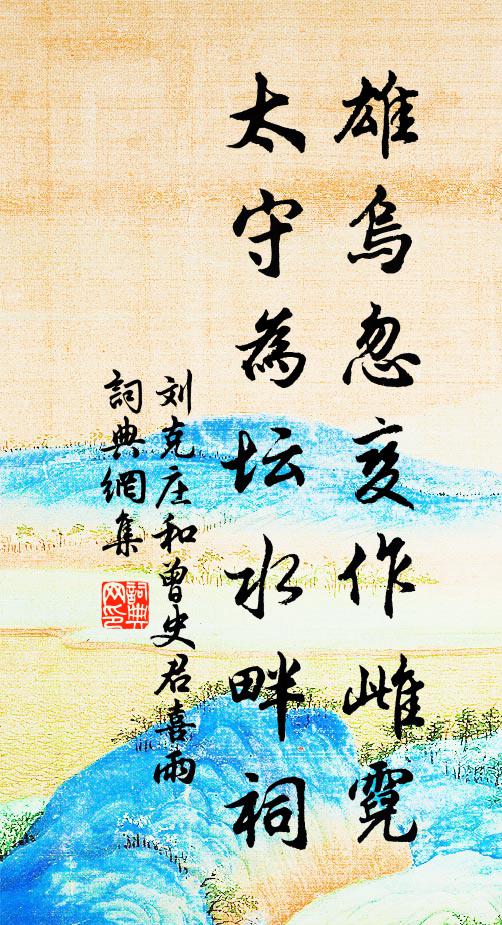 雄烏忽变作雌霓
太守為坛水畔祠
刘克庄和曾史君喜雨
詞典網集
詞典